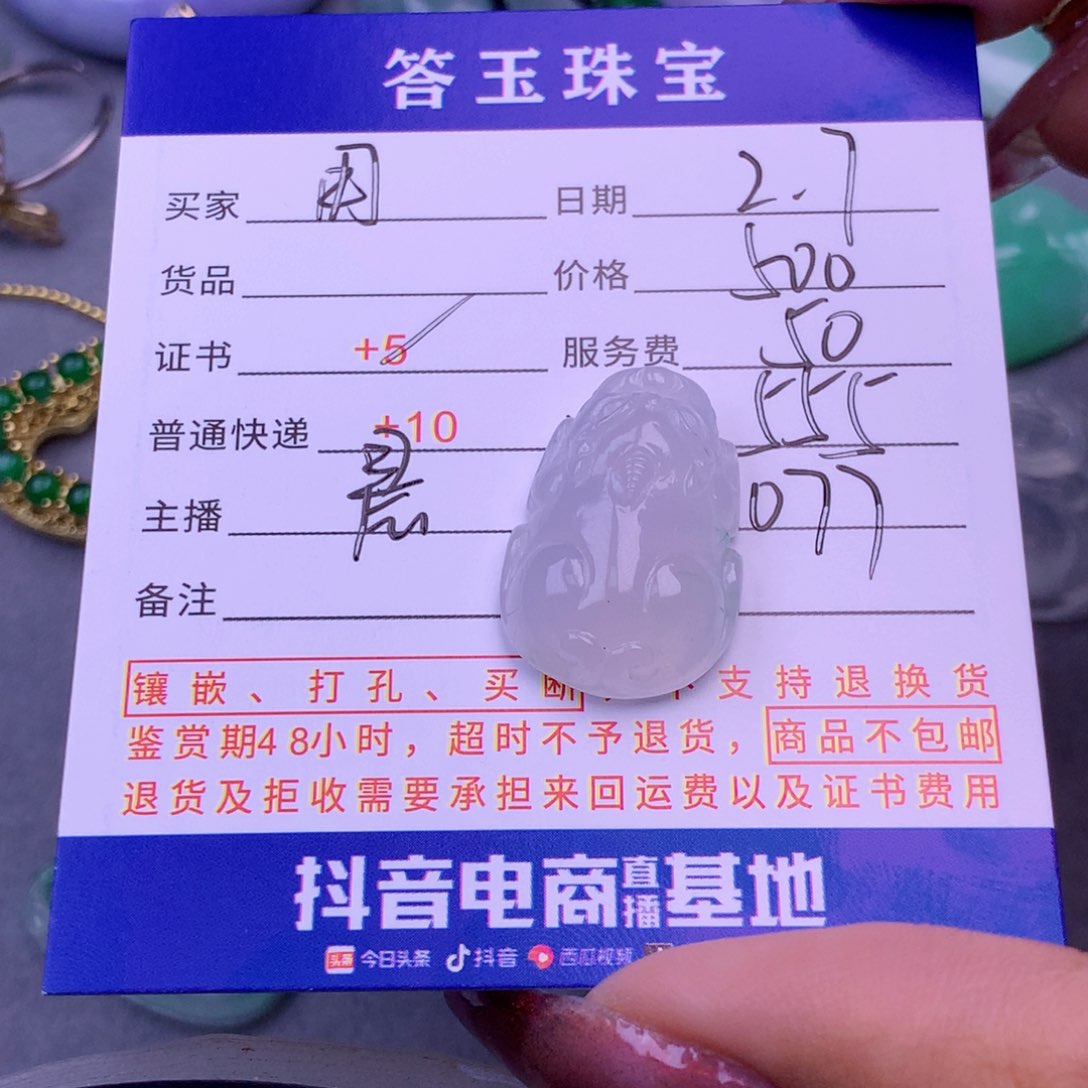 答玉珠宝
买家 日期 2.7
货品 价格 500
证书 +5 服务费 50
普通快递 +10 555
主播 晨 077
备注
镶嵌、打孔、买断，不支持退换货
鉴赏期48小时，超时不予退货，商品不包邮
退货及拒收需要承担来回运费以及证书费用
抖音电商直播基地
头条 今日头条 抖音 西瓜视频